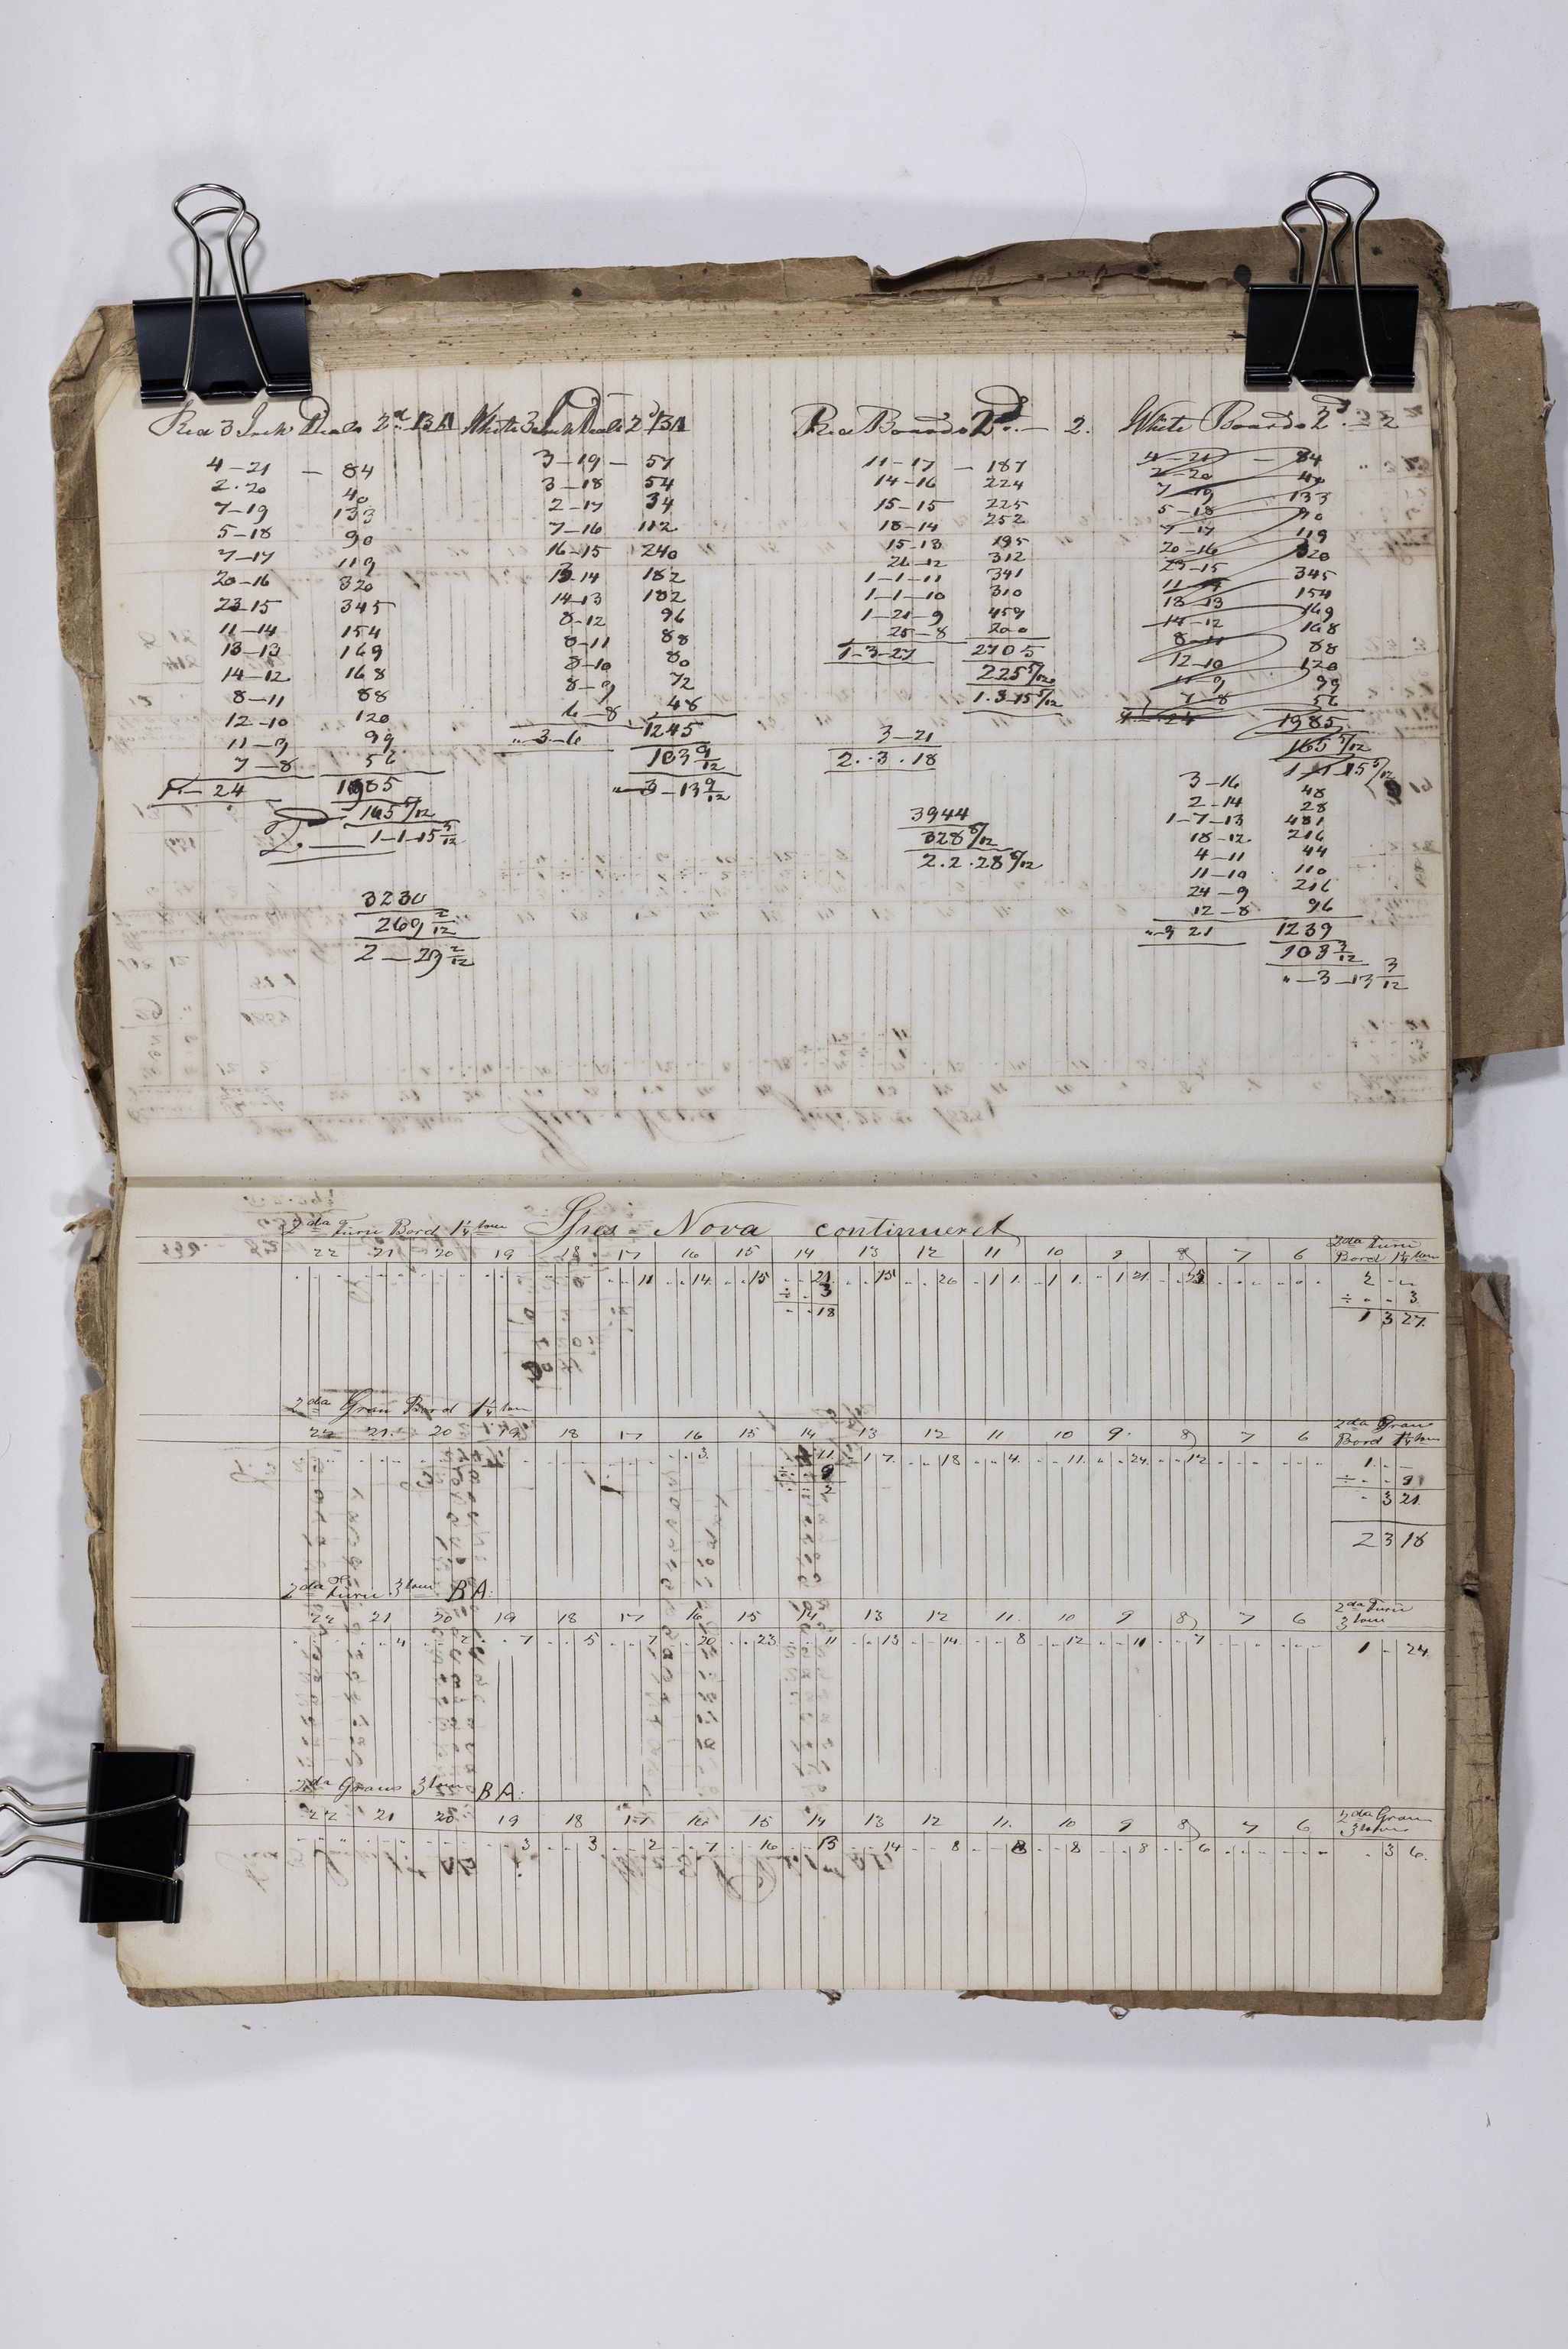 Red 3 Inch Deals 2d BA
4 – 21 – 84
2 · 20 40
7 – 19 133
5 – 18 90
7 – 17 119
20 – 16 320
23 – 15 345
11 – 14 154
13 – 13 169
14 – 12 168
8 – 11 88
12 – 10 120
11 – 9 99
7 – 8 56
1 – 24 1985
165 5/12
1 – 1 – 15 5/12
3230
269 2/12
2 – 29 2/12
White 3 Inch Deals 2d BA
3 – 19 – 57
3 – 18 54
2 – 17 34
7 – 16 112
16 – 15 240
13 – 14 182
14 – 13 182
8 – 12 96
8 – 11 88
8 – 10 80
8 – 9 72
6 – 8 48
" – 3 – 6 1245
103 9/12
" – 3 – 13 9/12
Red Boards 2d – 2.
11 – 17 – 187
14 – 16 224
15 – 15 225
18 – 14 252
15 – 13 195
26 – 12 312
1 – 1 – 11 341
1 – 1 – 10 310
1 – 21 – 9 459
25 – 8 200
1 – 3 – 27 2705
225 5/12
1 . 3 . 15 5/12
3 – 21
2 . . 3 . 18
3944
328 8/12
2 . 2 . 28 8/12
White Boards 2d – 2
4 – 21 – 84
2 – 20 40
7 – 19 133
5 – 18 90
7 – 17 119
20 – 16 320
23 – 15 345
11 – 14 154
13 – 13 169
14 – 12 168
8 – 11 88
12 – 10 120
11 – 9 99
7 – 8 56
1 – 24 1985
165 5/12
1 – 1 – 15 5/12
3 – 16 48
2 – 14 28
1 – 7 – 13 481
18 – 12 216
4 – 11 44
11 – 10 110
24 – 9 216
12 – 8 96
" – 3 21 1239
103 3/12
" – 3 – 13 3/12
Spes Nova continueret
2da Furu Bord 1¼ tom
22 21 20 19 18 17 16 15 14 13 12 11 10 9 8 7 6 2da Furu Bord 1¼ tom
11 14 15 21 15 26 1 1 1 1 1 21 25 2 - -
÷ 3 ÷ - - 3
18 1 3 27
2da Gran Bord 1¼ tom
22 21 20 19 18 17 16 15 14 13 12 11 10 9 8 7 6 2da Gran Bord 1¼ tom
3 11 1 7 18 4 11 24 12 1 - -
÷ 9 ÷ - - 9
2 - 3 21
2 3 18
2da Furu 3 tom BA:
22 21 20 19 18 17 16 15 14 13 12 11 10 9 8 7 6 2da Furu 3 tom
4 2 7 5 7 20 23 11 13 14 8 12 11 7 1 - 24
2da Grans 3 tom BA:
22 21 20 19 18 17 16 15 14 13 12 11 10 9 8 7 6 2da Gran 3 tom
3 3 2 7 16 13 14 8 8 8 8 6 . 3 6